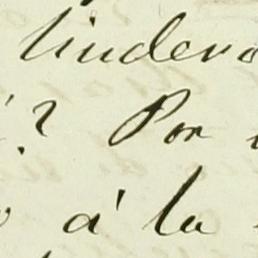 lindero
? Por
á la